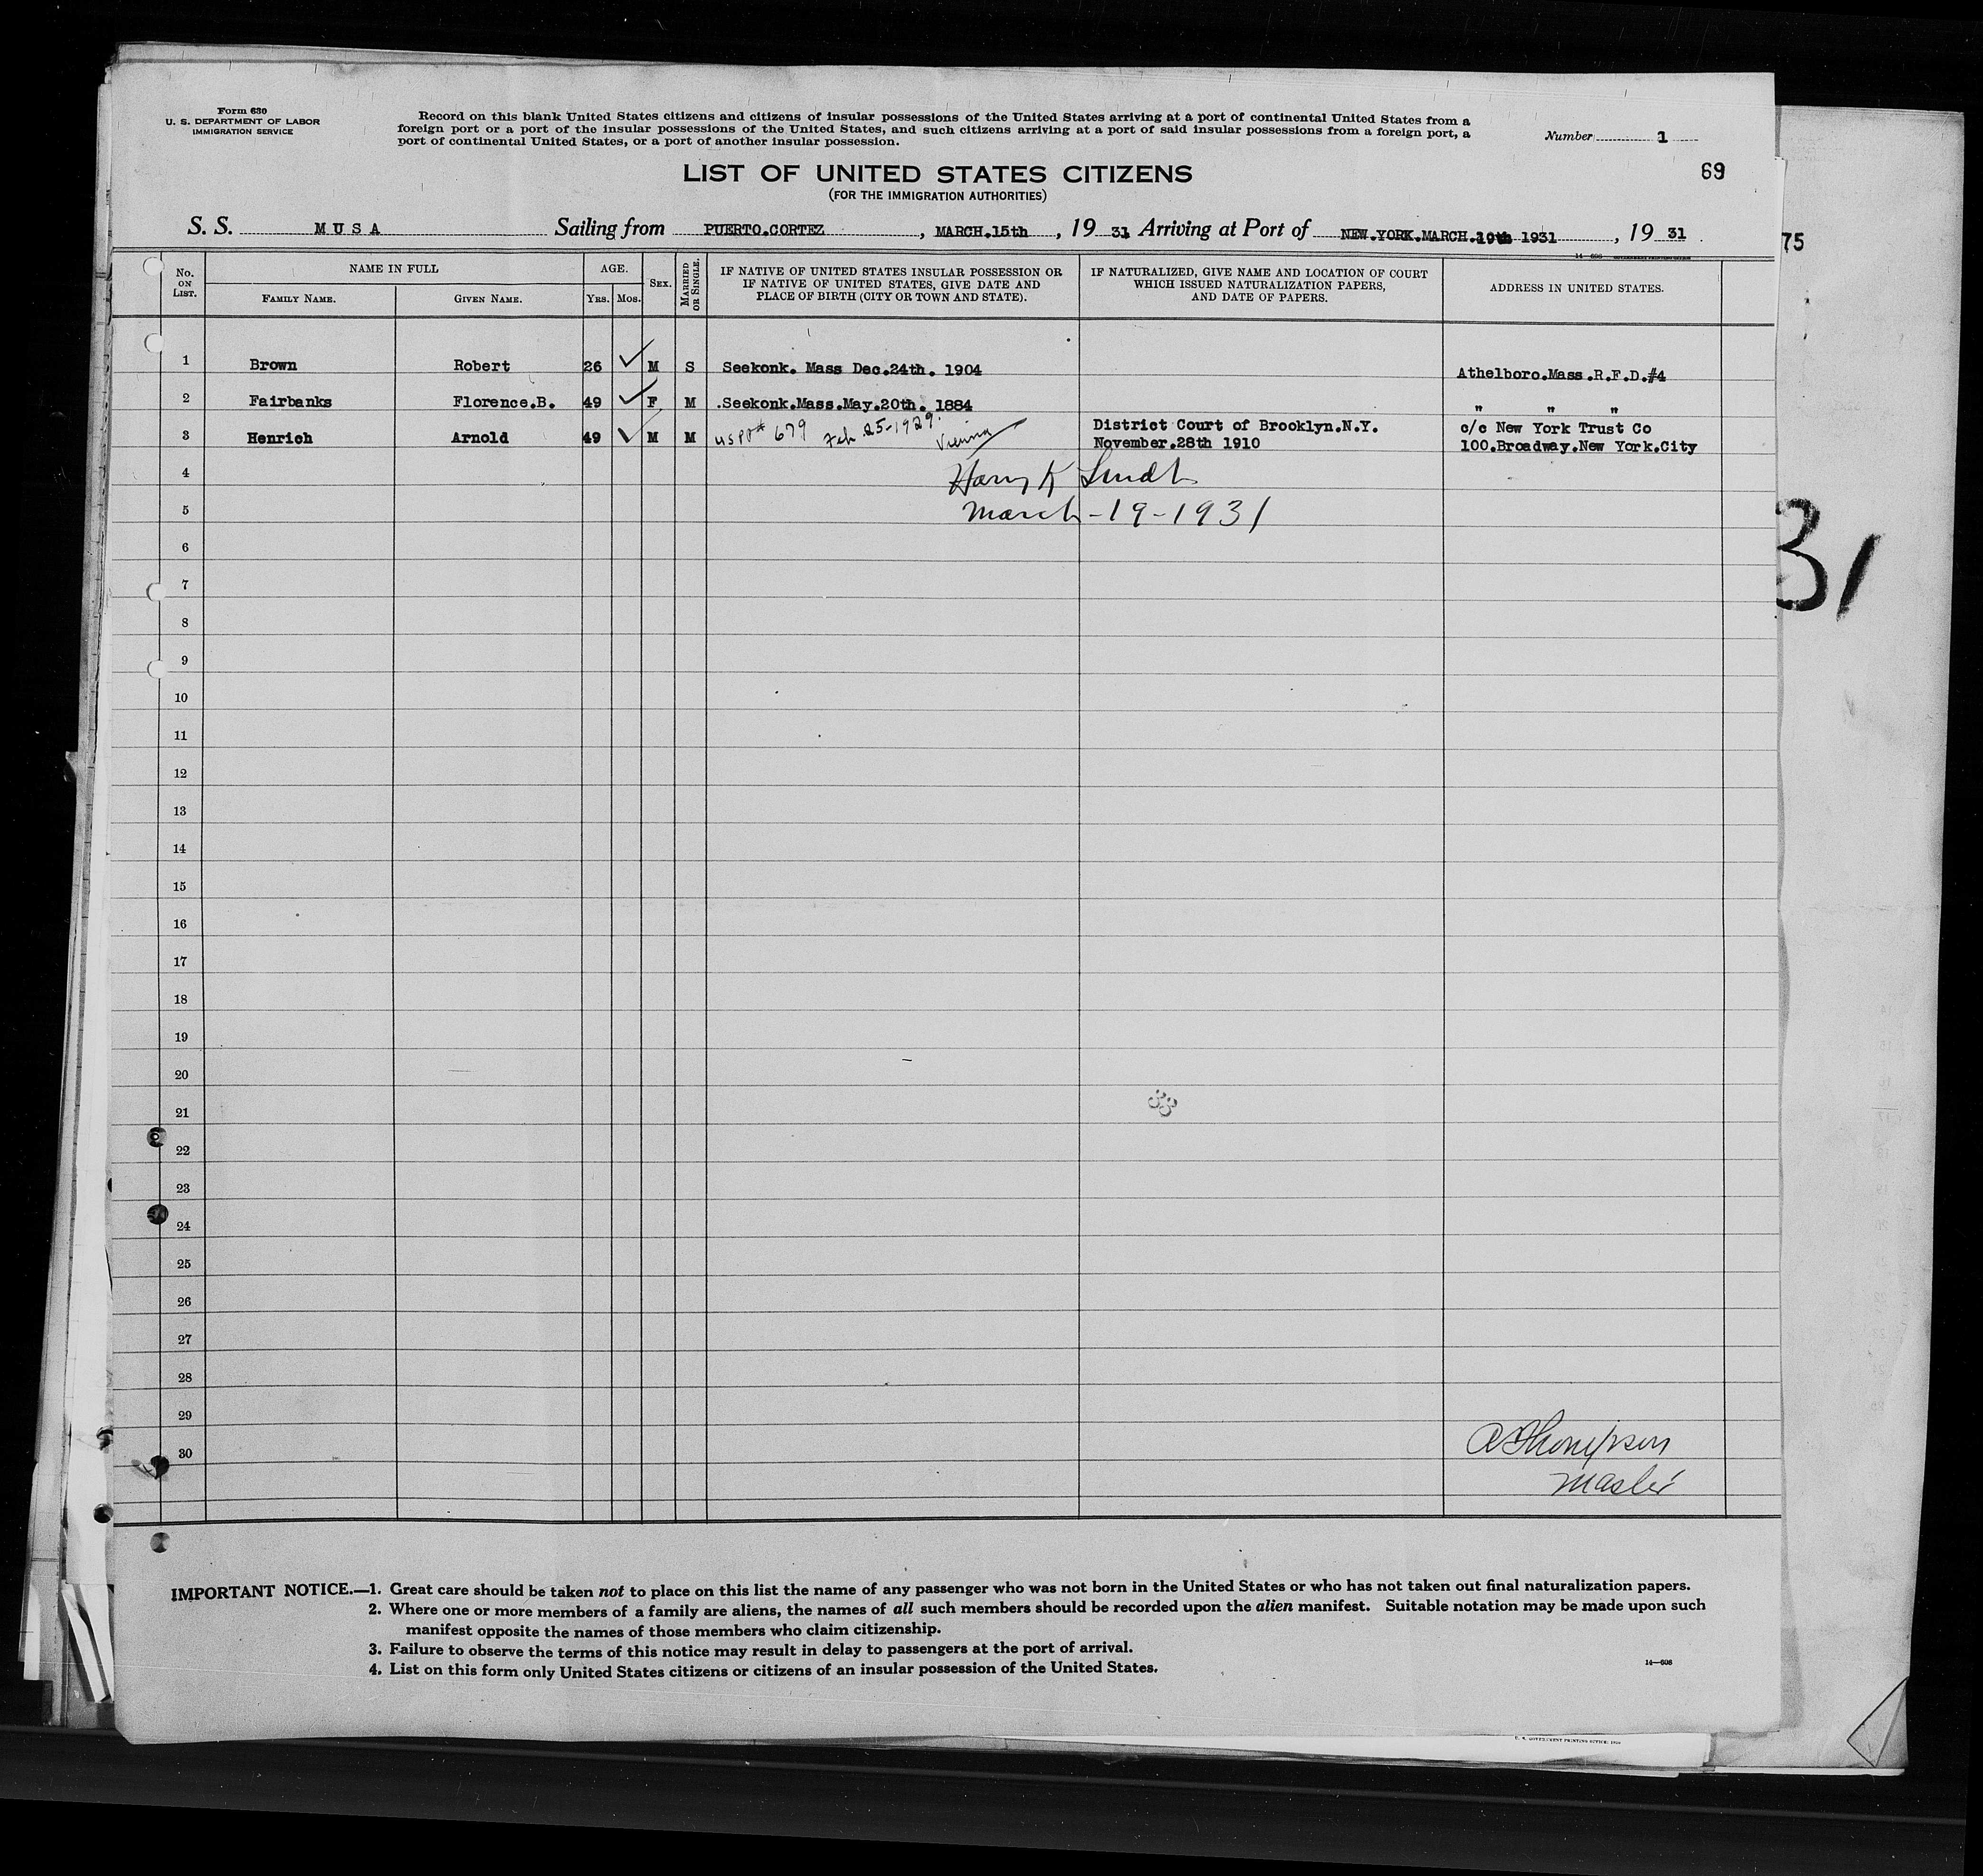 Form 630
U. S. DEPARTMENT OF LABOR
IMMIGRATION SERVICE
Record on this blank United States citizens and citizens of insular possessions of the United States arriving at a port of continental United States from a
foreign port or a port of the insular possessions of the United States, and such citizens arriving at a port of said insular possessions from a foreign port, a
port of continental United States, or a port of another insular possession.
Number 1
69
LIST OF UNITED STATES CITIZENS
(FOR THE IMMIGRATION AUTHORITIES)
S. S. MUSA Sailing from PUERTO.CORTEZ, MARCH.15th, 19 31 Arriving at Port of NEW.YORK.MARCH.19th 1931, 19 31.
75
No. ON LIST.
NAME IN FULL
FAMILY NAME.
GIVEN NAME.
AGE.
YRS. MOS.
SEX.
MARRIED OR SINGLE.
IF NATIVE OF UNITED STATES INSULAR POSSESSION OR
IF NATIVE OF UNITED STATES, GIVE DATE AND
PLACE OF BIRTH (CITY OR TOWN AND STATE).
IF NATURALIZED, GIVE NAME AND LOCATION OF COURT
WHICH ISSUED NATURALIZATION PAPERS,
AND DATE OF PAPERS.
ADDRESS IN UNITED STATES.
1 Brown Robert 26 M S Seekonk. Mass Dec.24th. 1904 Athelboro.Mass.R.F.D.#4
2 Fairbanks Florence.B. 49 F M .Seekonk.Mass.May.20th. 1884 " " "
3 Henrich Arnold 49 M M USPP# 679 Feb 25-1929. Vienna District Court of Brooklyn.N.Y. c/c New York Trust Co
November.28th 1910 100.Broadway.New York.City
4 Harry K
5 March-19-1931
31
6
7
8
9
10
11
12
13
14
15
16
17
18
19
20
21
22
23
24
25
26
27
28
29
30
Thompson
Master
IMPORTANT NOTICE.—1. Great care should be taken not to place on this list the name of any passenger who was not born in the United States or who has not taken out final naturalization papers.
2. Where one or more members of a family are aliens, the names of all such members should be recorded upon the alien manifest. Suitable notation may be made upon such
manifest opposite the names of those members who claim citizenship.
3. Failure to observe the terms of this notice may result in delay to passengers at the port of arrival.
4. List on this form only United States citizens or citizens of an insular possession of the United States.
14—608